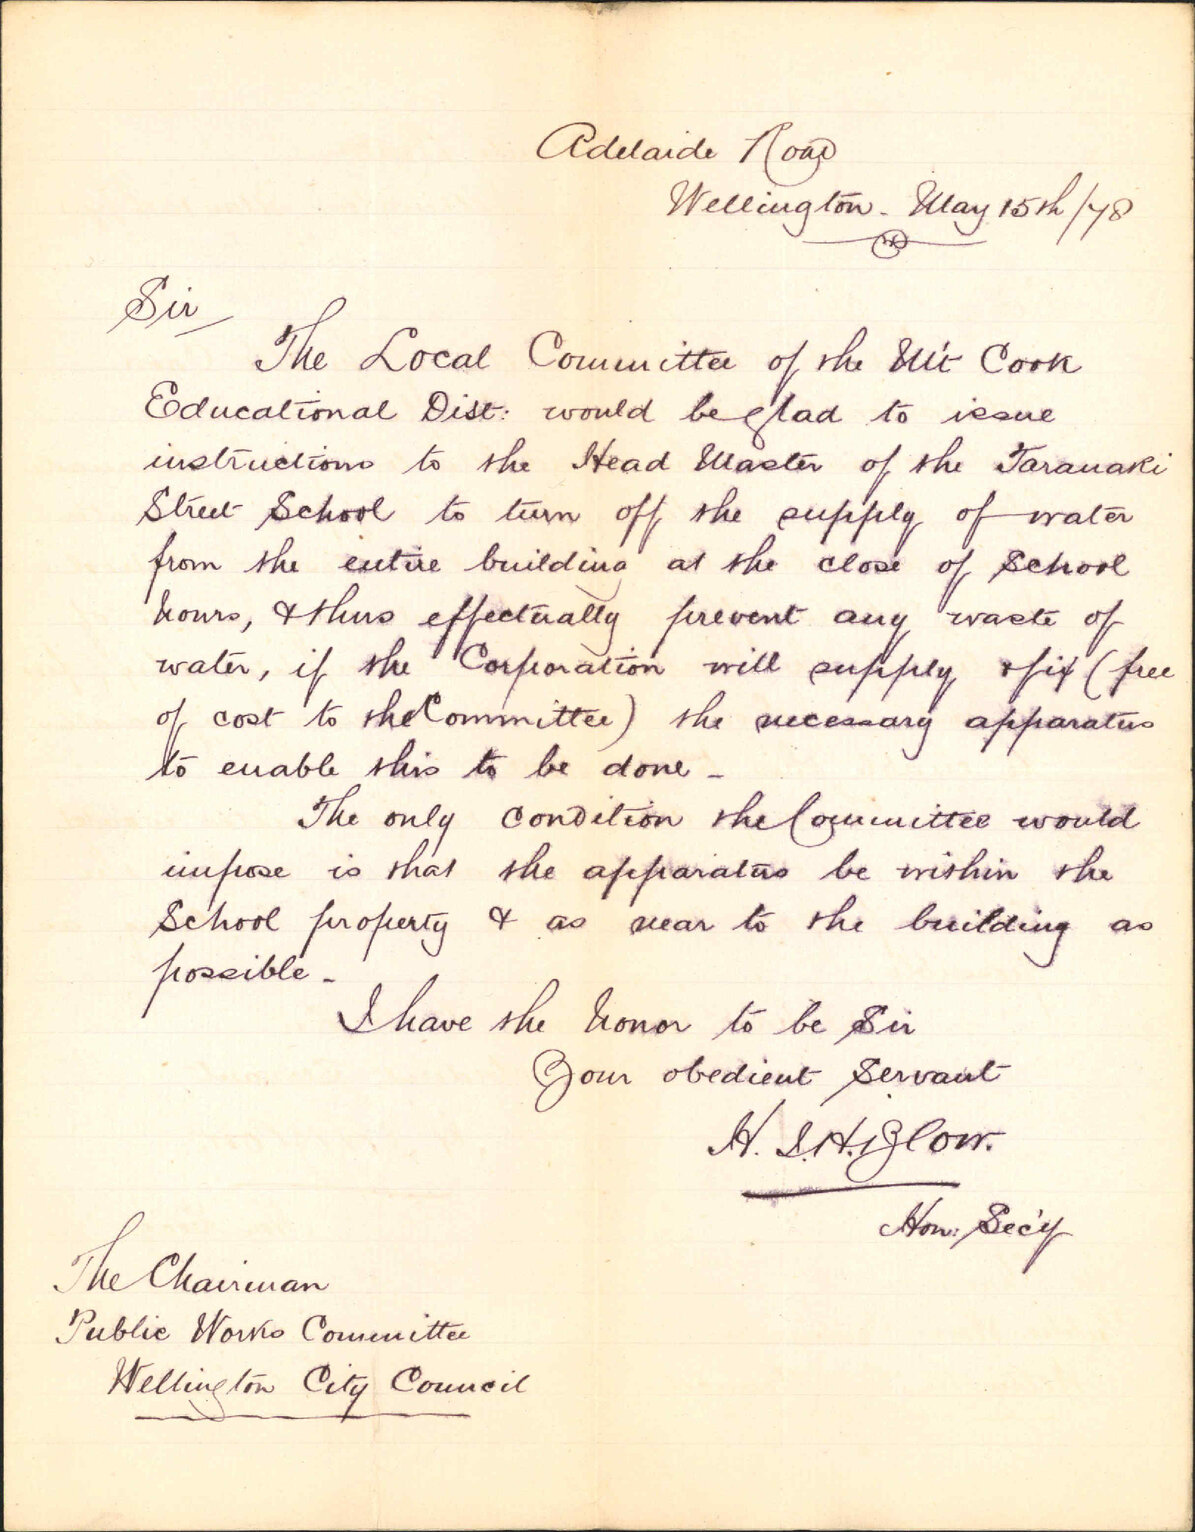 Adelaide Road
Wellington. May 15th/78
Sir
The Local Committee of the Mt Cook
Educational Dist: would be glad to issue
instructions to the Head Master of the Taranaki
Street School to turn off the supply of water
from the entire building at the close of School
hours, & thus effectually prevent any waste of
water, if the Corporation will supply & fix (free
of cost to the Committee) the necessary apparatus
to enable this to be done -
The only condition the Committee would
impose is that the apparatus be within the
School property & as near to the building as
possible -
I have the honor to be Sir
Your obedient Servant
H. I. H. Blow.
Hon: Sec'y
The Chairman
Public Works Committee
Wellington City Council